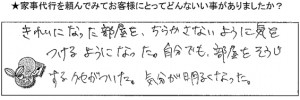 ★家事代行を頼んでみてお客様にとってどんないい事がありましたか？
きれいになった部屋を、ちらかさないように気を
つけるようになった。自分でも、部屋をそうじ
するクセがついた。気分が明るくなった。